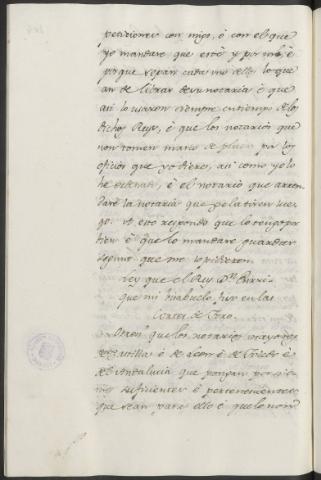 peticiones con migo, ò con el que
yo mandare que esté y por mi, è
porque sepan cada uno dellos lo que
an de librar de su notaria è que
asi lo usaron siempre en tiempo de los
dichos Reyes, è que los notarios que
non tomen mano de por los
oficios que yo diere, asi como yo lo
he ordenado, è el notario que
la notaria que
A esto respondo que lo tengo por
bien è que lo mandare guardar
segunt que me lo pidieron
Ley que el Rey Dn Enrri-
que mi trahuelo fizo en las
Cortes de Toro.
que los notarios mayores
de Castilla è de Leon è de Toledo è
de Andalucia que pongan por si
suficientes è pertenecientes
que sean para ello è que lo non